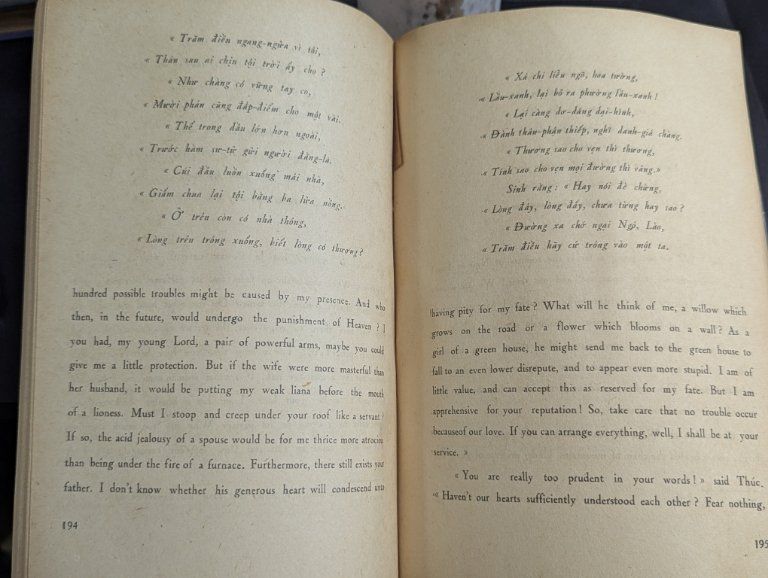 « Trăm điều ngang-ngửa vì tôi,
« Thân sau ai chịu tội trời ấy cho ?
« Như chàng có vững tay co,
« Mười phần cũng đắp-điếm cho một vài.
« Thế trong dầu lớn hơn ngoài,
« Trước hàm sư-tử gửi người đằng-la.
« Cúi đầu luồn xuống mái nhà,
« Giấm chua lại tội bằng ba lửa nồng.
« Ở trên còn có nhà thông,
« Lòng trên trông xuống, biết lòng có thương ?
hundred possible troubles might be caused by my presence. And who
then, in the future, would undergo the punishment of Heaven ?
you had, my young Lord, a pair of powerful arms, maybe you could
give me a little protection. But if the wife were more masterful than
her husband, it would be putting my weak liana before the mouth
of a lioness. Must I stoop and creep under your roof like a servant ?
If so, the acid jealousy of a spouse would be for me thrice more atrocious
than being under the fire of a furnace. Furthermore, there still exists your
father. I don't know whether his generous heart will condescend
194
« Xá chi liễu ngõ, hoa tường,
« Lầu-xanh, lại bỏ ra phường lầu-xanh !
« Lại càng dơ-dáng dại-hình,
« Đành thân-phận thiếp, nghĩ danh-giá chàng.
« Thương sao cho vẹn thì thương,
« Tính sao cho vẹn mọi đường thì vâng.»
Sinh rằng : « Hay nói đè chừng,
« Lòng đây, lòng đấy, chưa từng hay sao ?
« Đường xa chớ ngại Ngô, Lào,
« Trăm điều hãy cứ trông vào một ta.
having pity for my fate ? What will he think of me, a willow which
grows on the road or a flower which blooms on a wall ? As a
girl of a green house, he might send me back to the green house to
fall to an even lower disrepute, and to appear even more stupid. I am of
little value, and can accept this as reserved for my fate. But I am
apprehensive for your reputation ! So, take care that no trouble occur
becauseof our love. If you can arrange everything, well, I shall be at your
service. »
« You are really too prudent in your words ! » said Thúc.
« Haven't our hearts sufficiently understood each other ? Fear nothing,
195